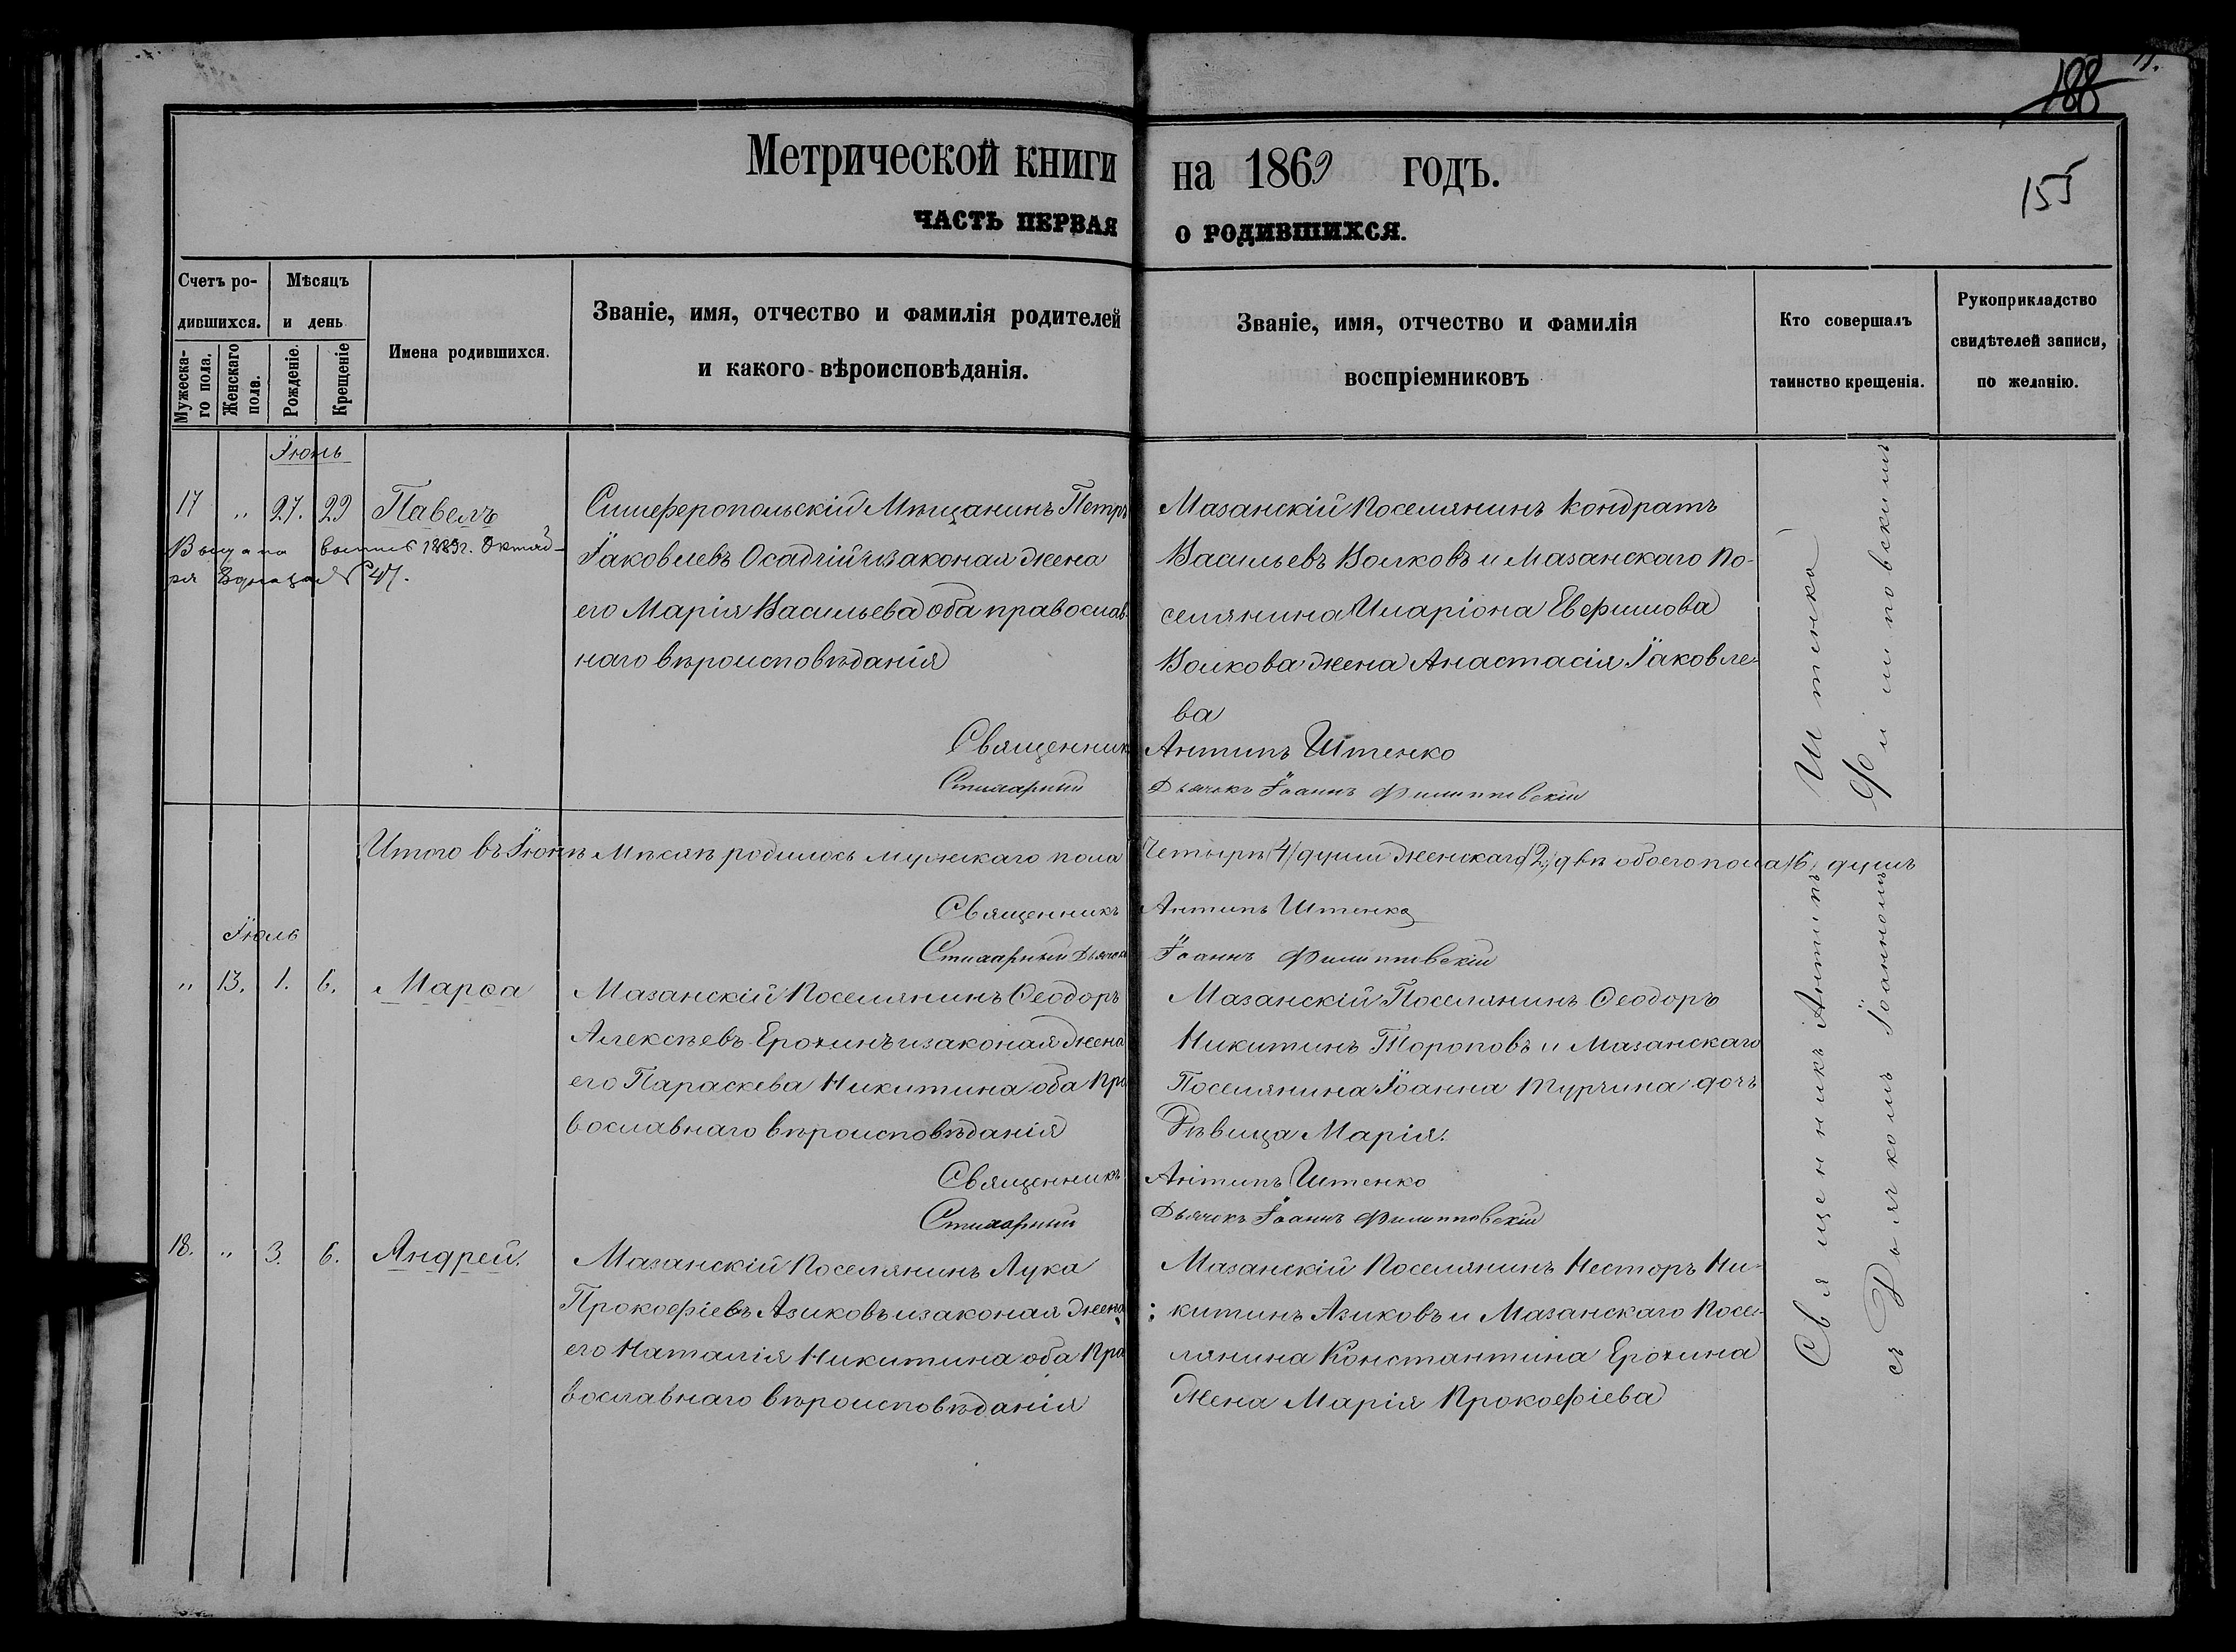 188
155
Метрической книги на 1869 годъ.
ЧАСТЬ ПЕРВАЯ О РОДИВШИХСЯ.
Счетъ родившихся.
Мужескаго пола.
Женскаго пола.
Мѣсяцъ и день
Рожденіе.
Крещеніе
Имена родившихся.
Званіе, имя, отчество и фамилія родителей
и какого вѣроисповѣданія.
Званіе, имя, отчество и фамилія
воспріемниковъ
Кто совершалъ
таинство крещенія.
Рукоприкладство
свидѣтелей записи,
по желанію.
Іюнь
17 " 27. 29 Павелъ
1889г. Октяб-
ря № 47.
Симферопольскій Мѣщанинъ Петръ
Іаковлевъ Осадчій и законая жена
его Марія Васильева оба православ-
наго вѣроисповѣданія
Мазанскій Поселянинъ Кондратъ
Васильевъ Волковъ и Мазанскаго По-
селянина Иларіона Евфимова
Волкова жена Анастасія Іаковле-
ва
Священник Антипъ Штенко
Стихарный Дьячокъ Іоаннъ Филипповскій
Итого въ Іюнѣ Мѣсяцѣ родилось мужскаго пола Четырѣ /4/ души женскаго /2/ двѣ обоего пола /6/ душъ
Священникъ Антипъ Штенко
Стихарный Дьячокъ Іоаннъ Филипповскій
Іюль
" 13. 1. 6. Марѳа
Мазанскій Поселянинъ Ѳеодоръ
Алексѣевъ Ерохинъ и законая жена
его Параскева Никитина оба Пра
вославнаго вѣроисповѣданія
Мазанскій Поселянинъ Ѳеодоръ
Никитинъ Тороповъ и Мазанскаго
Поселянина Іоанна Турчина дочь
Дѣвица Марія.
Священникъ Антипъ Штенко
Стихарный Дьячокъ Іоаннъ Филипповскій
18. " 3. 6. Андрей.
Мазанскій Поселянинъ Лука
Прокофіевъ Азиковъ и законая жена
его Наталія Никитина оба Пра
вославнаго вѣроисповѣданія
Мазанскій Поселянинъ Несторъ Ни-
китинъ Азиковъ и Мазанскаго Посе-
лянина Константина Ерохина
Жена Марія Прокофіева
Священникъ Антипъ Штенко
съ Дьячкомъ Іоанномъ Филипповскимъ